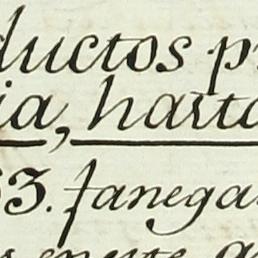 ductos p
ia, hasta
3. fanega